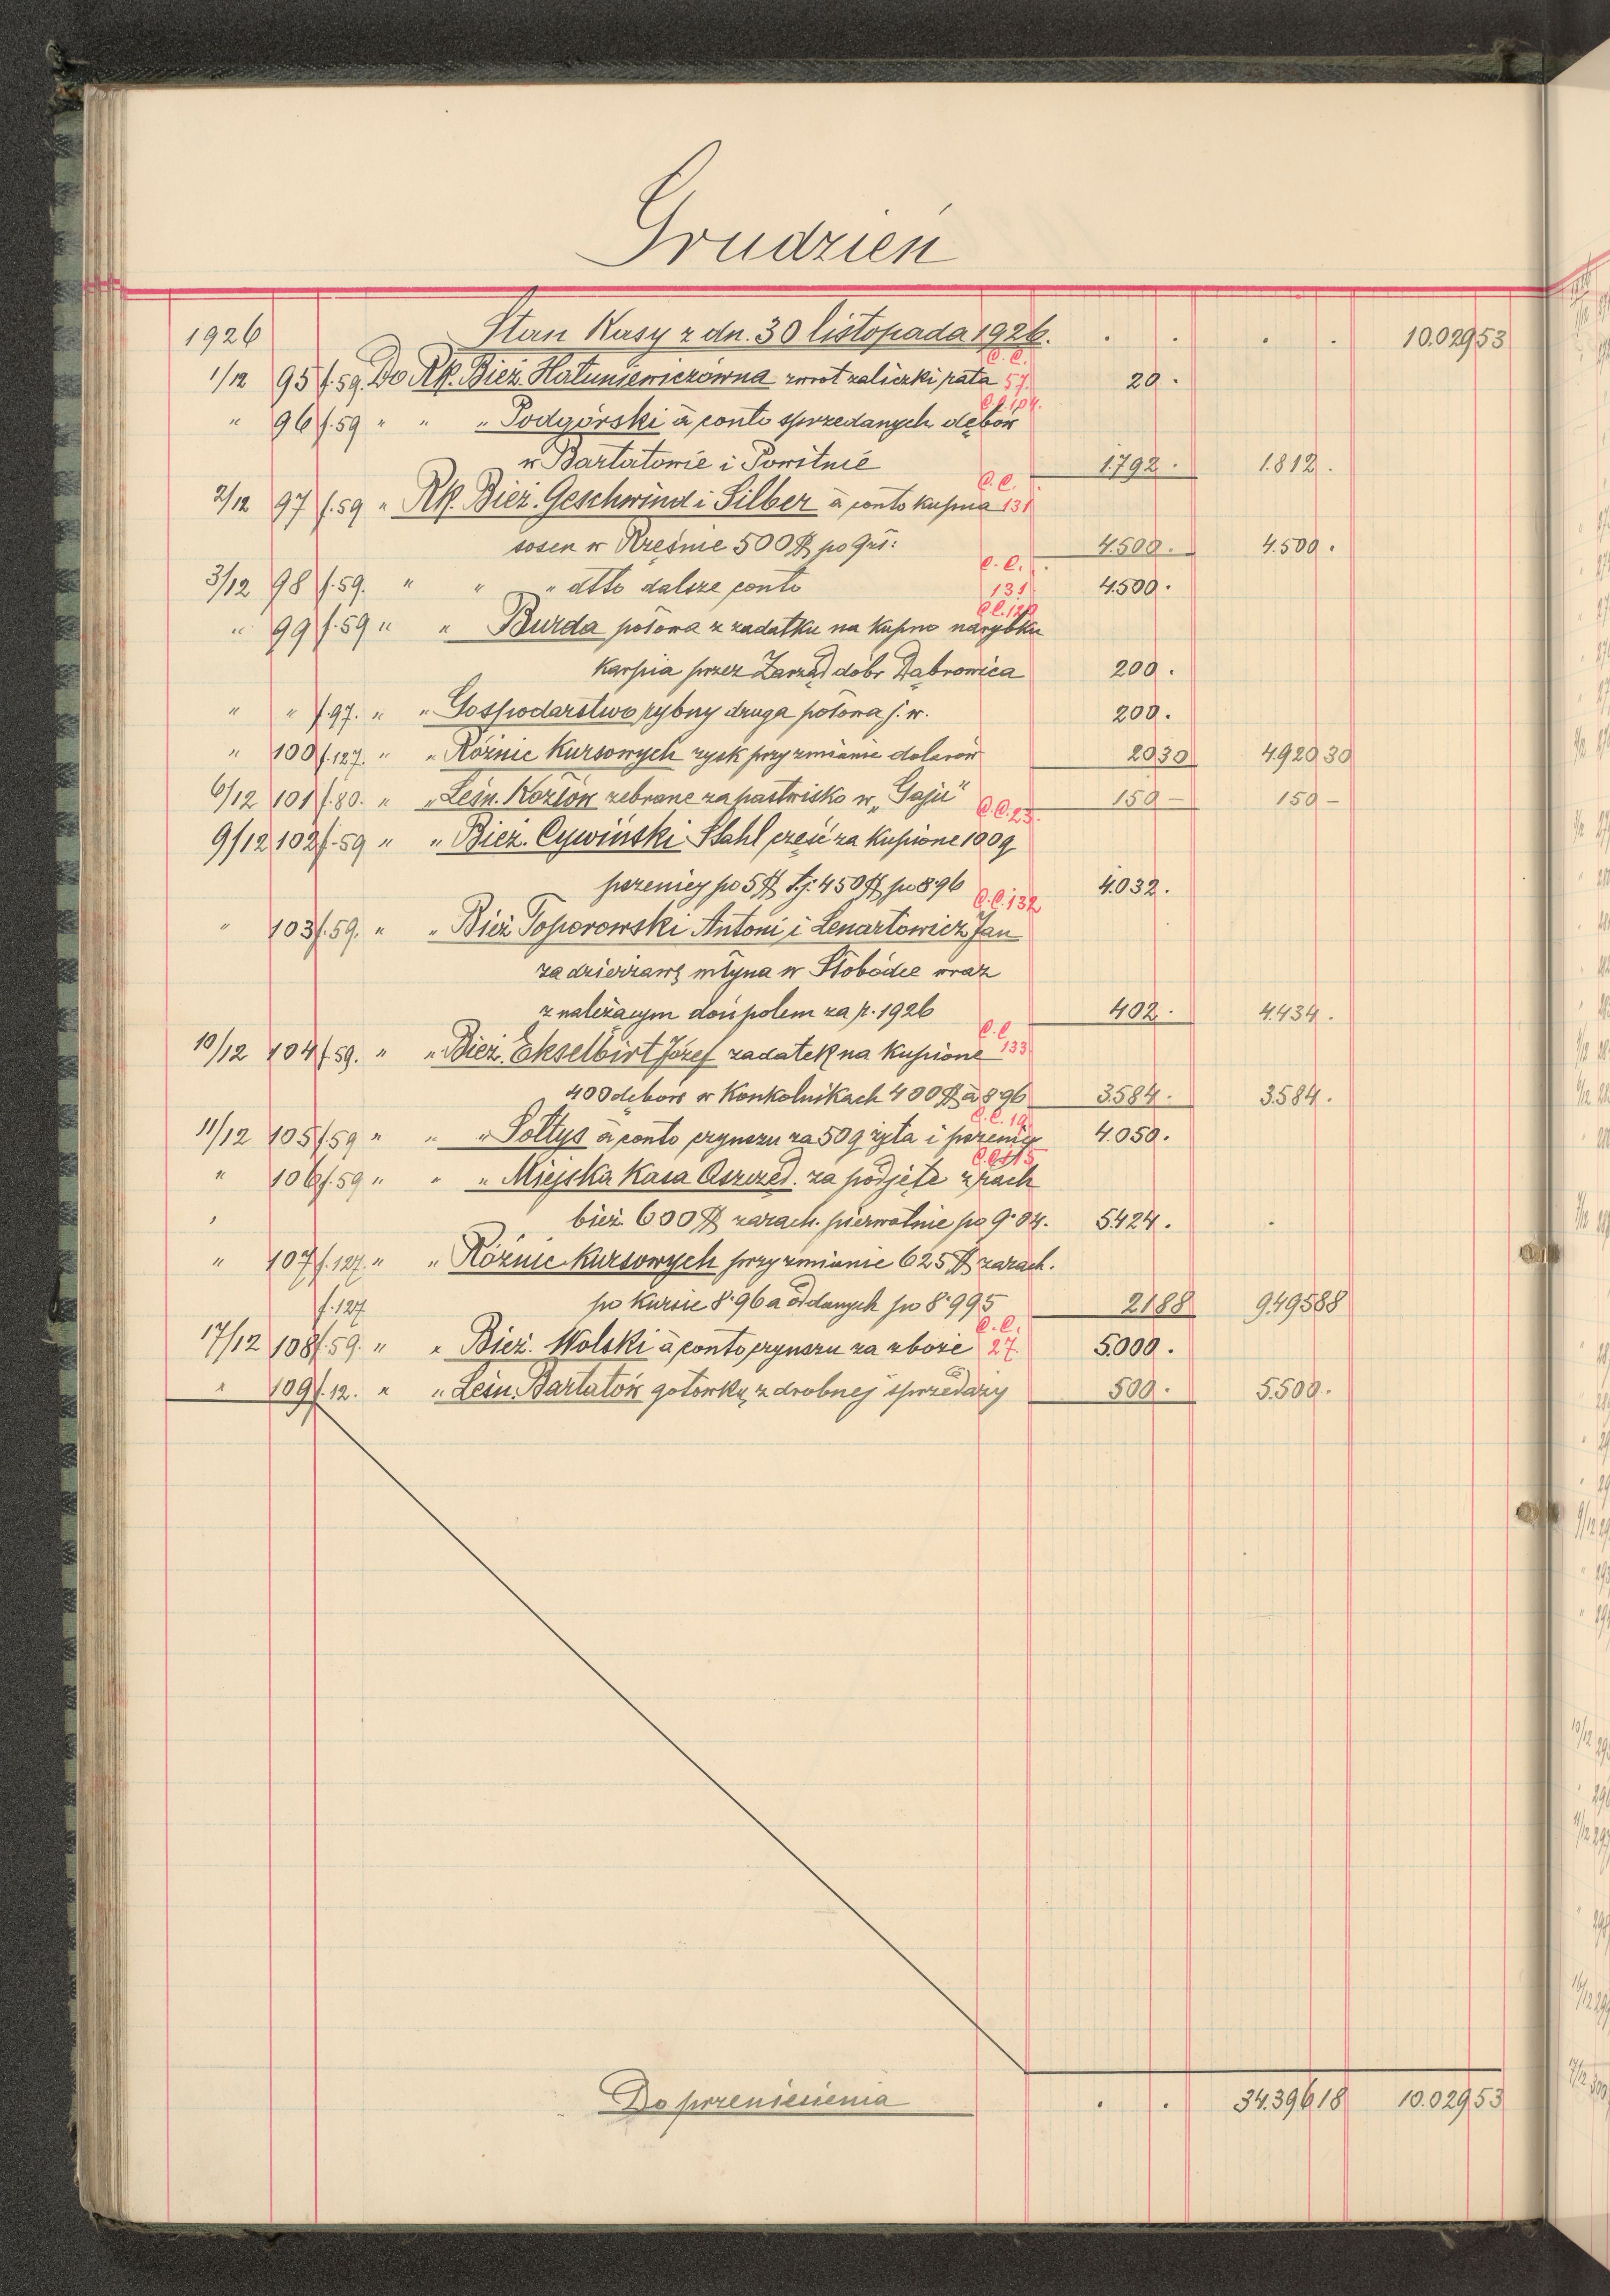 Grudzień
1926 Stan Kasy z dn. 30 listopada 1926. . . . . 10.029 53
C. C.
1/12 95 f. 59. Do Rk. Bież. Hatuniewiczówna zwrot zaliczki rata 57. 20 .
C. C. 104.
" 96 f. 59 " " " Podgórski à conto sprzedanych dębów
w Bartatowie i Powitnie 1.792 . 1.812 .
C. C.
2/12 97 f. 59 " Rk. Bież. Geschwind i Silber à conto kupna 131
sosen w Rześnie 500 $ po 9 zł: 4.500 . 4.500 .
C. C.
3/12 98 f. 59. " " " dtto dalsze conto 131 4.500 .
" 99 f. 59 " " Burda połowa z zadatku na kupno narybku
karpia przez Zarząd dóbr Dąbrowica 200 .
" " f. 97. " " Gospodarstwo rybny druga połowa j. w. 200 .
" 100 f. 127. " " Różnic kursowych zysk przy zmianie dolarów 20 30 4.920 30
6/12 101 f. 80. " " Leśn. Kozłów zebrane za pastwisko w „Gaju" 150 – 150 –
C. C. 23.
9/12 102 f. 59 " " Bież. Cywiński Stahl część za kupione 100 q
pszenicy po 5 $ t. j. 450 $ po 8·96 4.032 .
C. C. 132
" 103 f. 59. " " Bież Toporowski Antoni i Lenartowicz Jan
za dzierżawę młyna w Słobódce wraz
z należącym doń polem za r. 1926 402 . 4.434 .
C. C
10/12 104 f. 59. " " Bież. Ekselbirt Józef zadatek na kupione 133
400 dębów w Konkolnikach 400 $ à 8·96 3.584 . 3.584 .
C. C. 19.
11/12 105 f. 59 " " " Sołtys à conto czynszu za 50 q żyta i pszenicy 4.050 .
C. C. 115
" 106 f. 59 " " " Miejska Kasa Oszczęd. za podjęte z rach
bież. 600 $ zarach. pierwotnie po 9·04. 5.424 . .
" 107 f. 127. " " Różnic kursowych przy zmianie 625 $ zarach.
f. 127 po kursie 8·96 a oddanych po 8·995 21 88 9.495 88
C. C.
17/12 108 f. 59. " " Bież. Wolski à conto czynszu za zboże 27 5.000 .
" 109 f. 12. " " Leśn. Bartatów gotówką z drobnej sprzedaży 500 . 5.500 .
Do przeniesienia . . 34.396 18 10.029 53